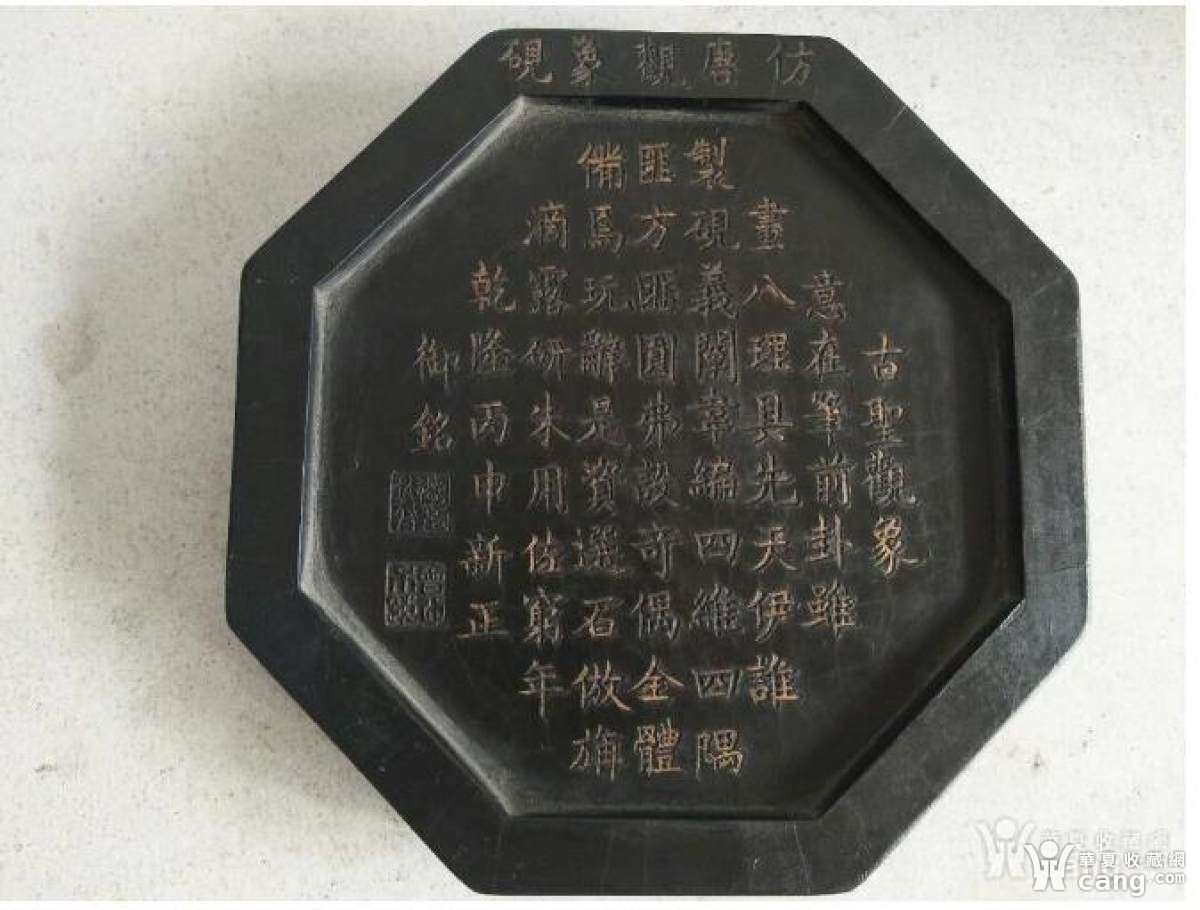 仿唐觀象硯
古聖觀象
意在筆前卦雖
畫八理具先天伊誰
製硯義闡韋編四維四隅
匪方匪圓弗設奇偶全體
備焉玩辭是資選石倣旃
滴露研朱用佐窮年
乾隆丙申新正
御銘
華夏收藏網
cang.com